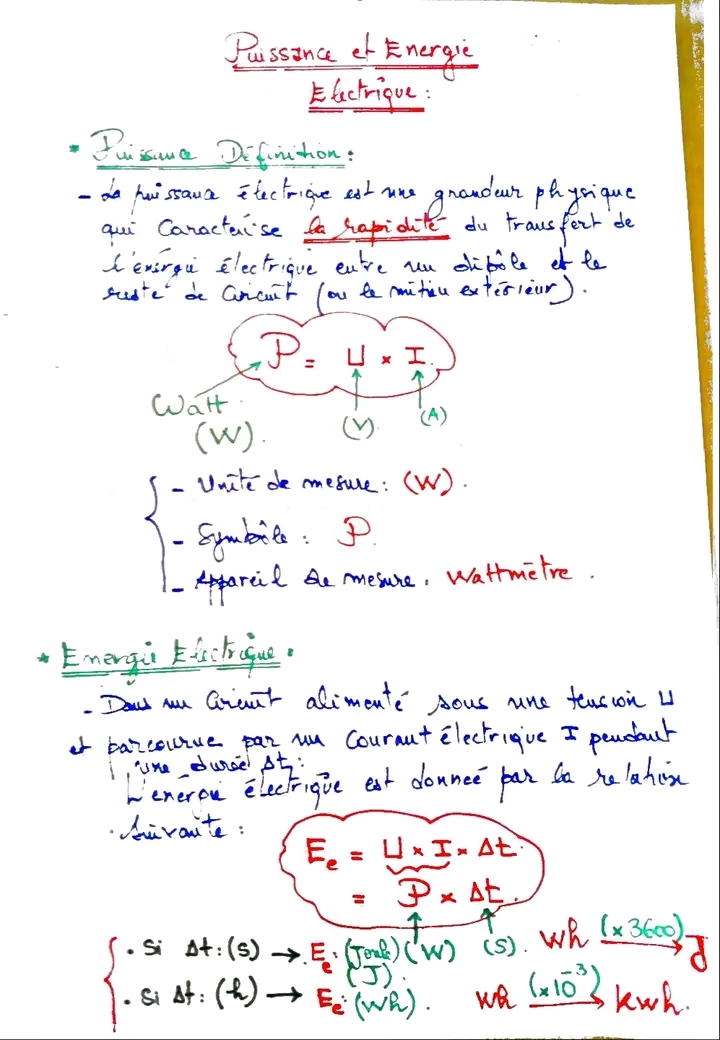 Puissance et Energie
Electrique :
* Puissance Définition :
- La puissance électrique est une grandeur physique
qui Caractérise la rapidité du transfert de
l'énérgie électrique entre un dipôle et le
reste de Circuit (ou le milieu extérieur).
P = U × I.
Watt
(W).
(V)
(A)
- Unité de mesure : (W).
- Symbôle : P.
- Appareil de mesure : Wattmètre.
* Energie Electrique :
- Dans un Circuit alimenté sous une tension U
et parcourue par un Courant électrique I pendant
une durée Δt :
L'énergie électrique est donneé par la relation
Suivante :
Ee = U × I × Δt
= P × Δt.
(W) (S).
. Si Δt : (s) → Ee : (Joule)
(J).
Wh (×3600) → J
. Si Δt : (h) → Ee : (Wh).
Wh (×10⁻³) → kwh.